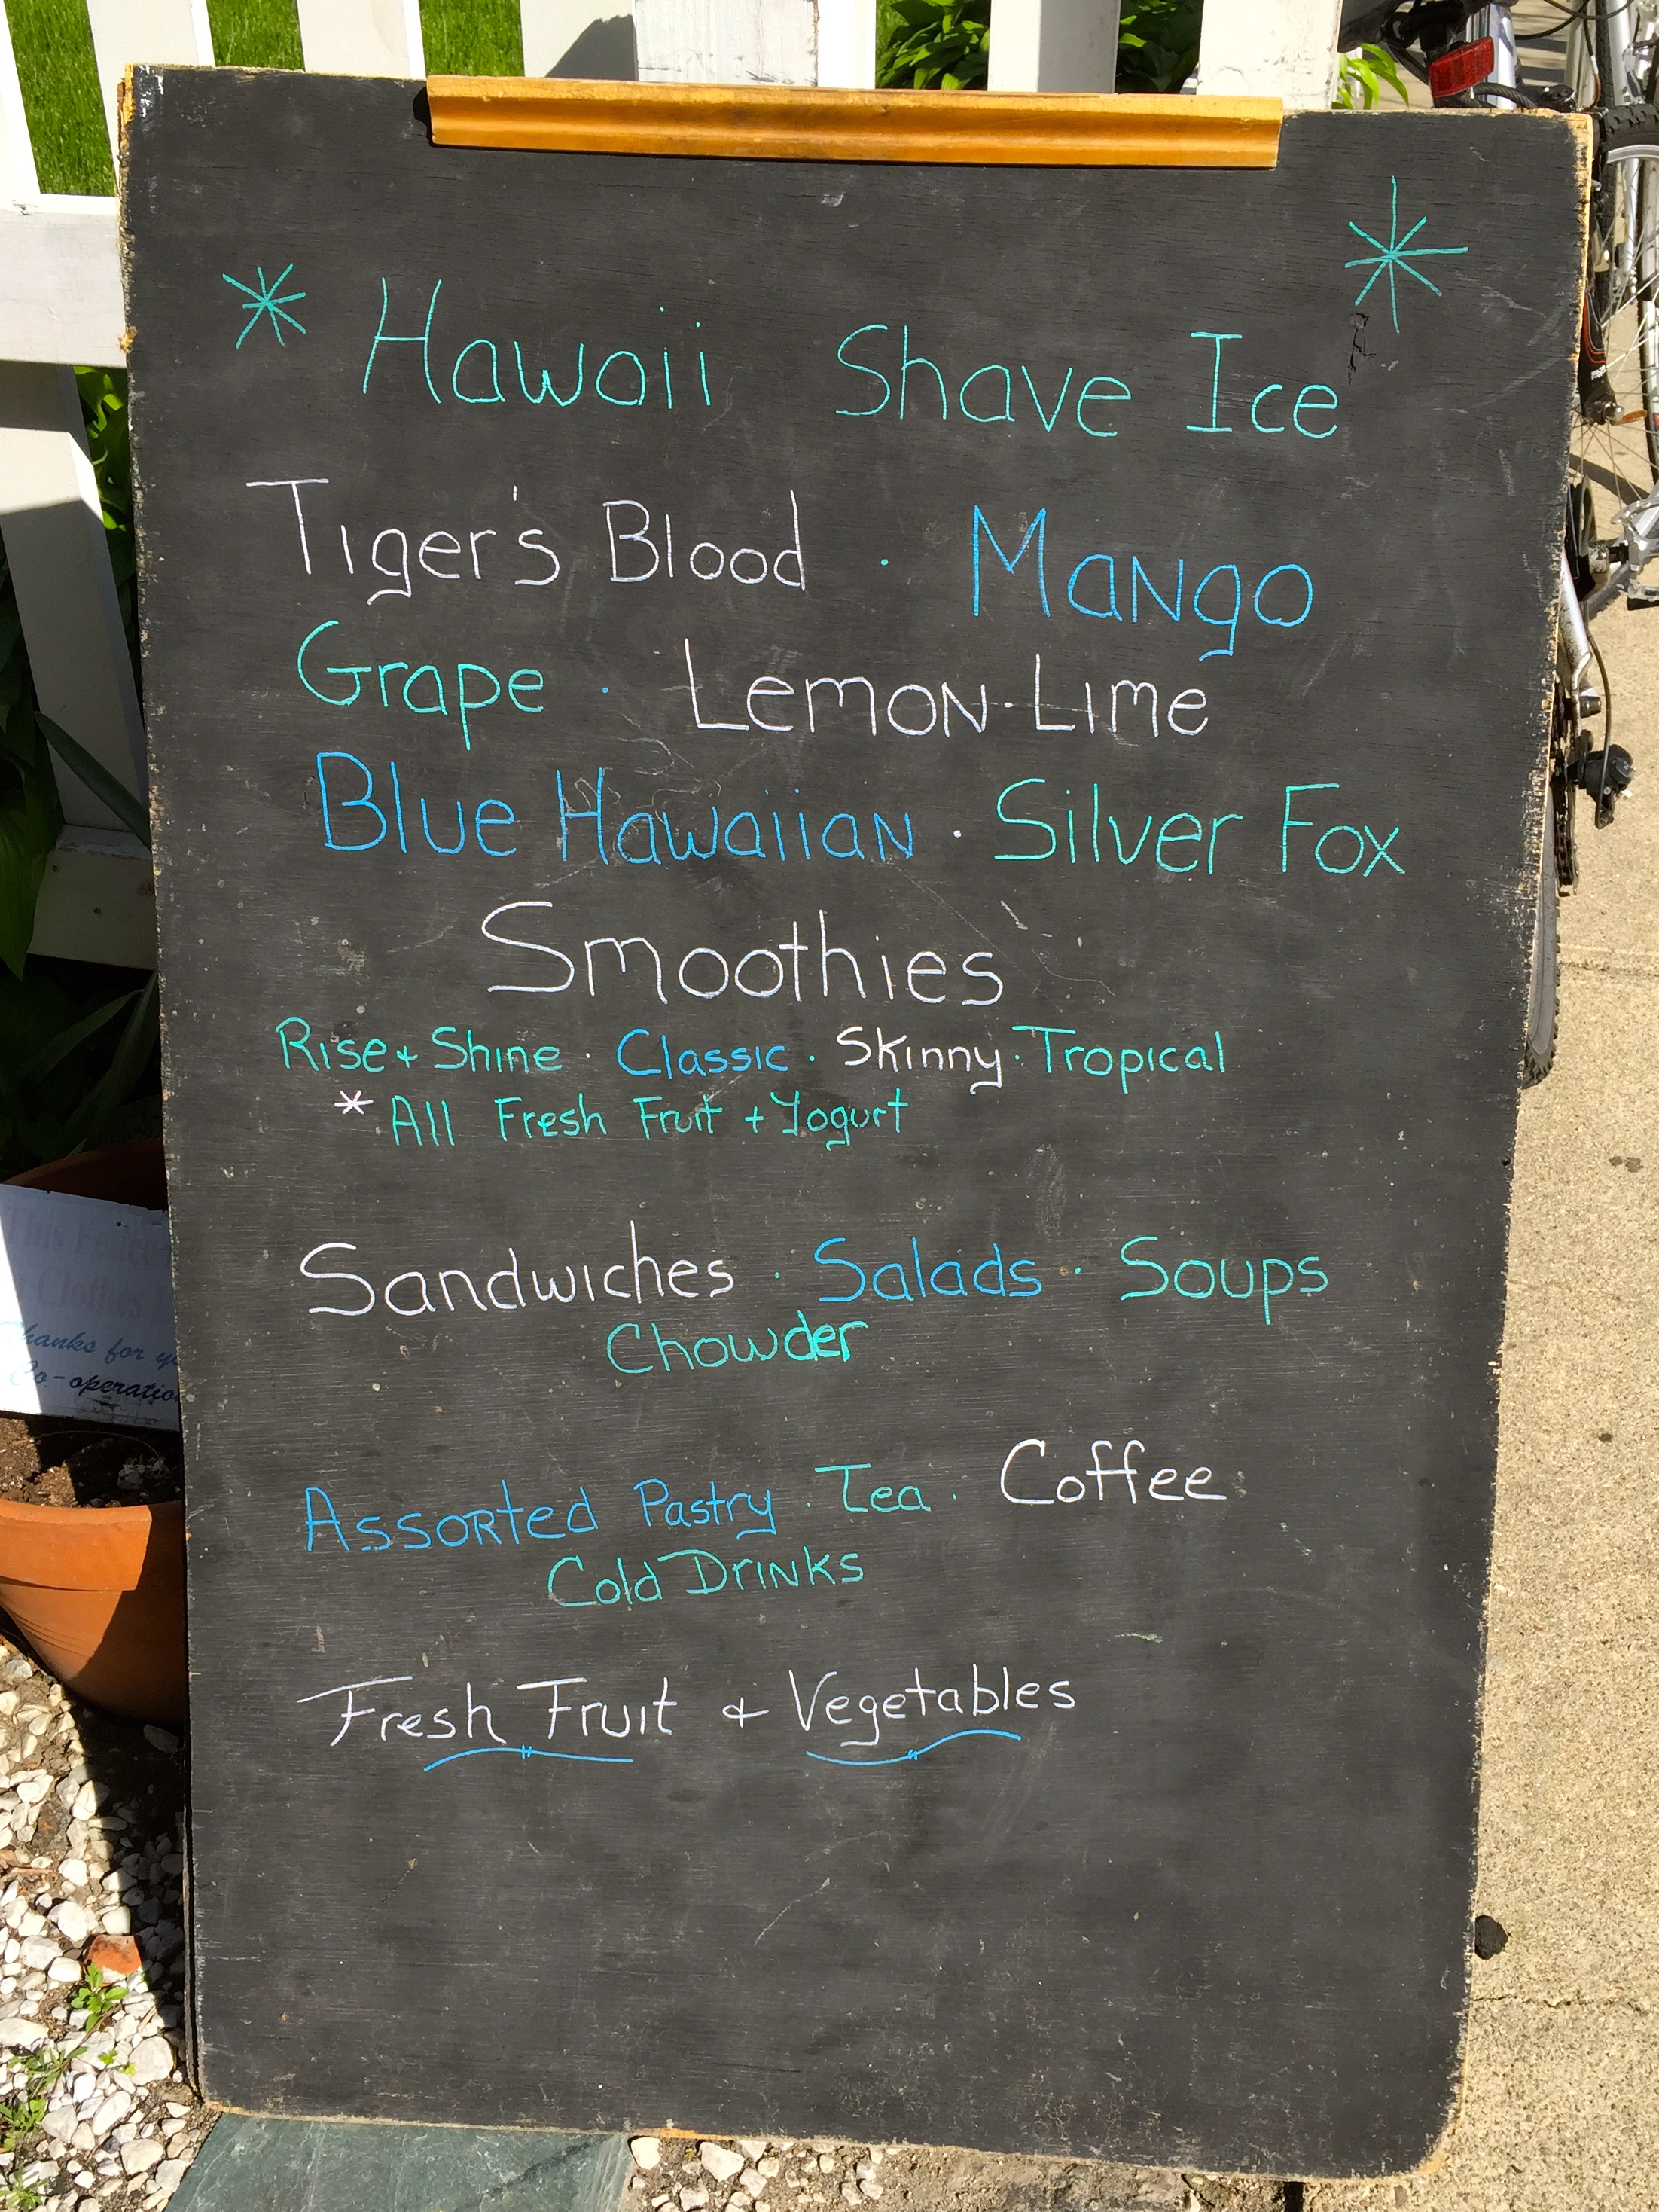 * Hawaii Shave Ice *
Tiger's Blood · Mango
Grape · Lemon-Lime
Blue Hawaiian · Silver Fox
Smoothies
Rise + Shine · Classic · Skinny · Tropical
* All Fresh Fruit + Yogurt
Sandwiches · Salads · Soups
Chowder
Assorted Pastry · Tea · Coffee
Cold Drinks
Fresh Fruit & Vegetables
Clothes
Thanks for
Co-operation